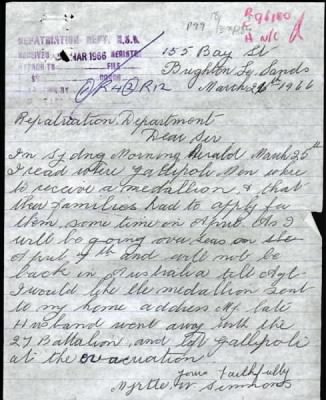 REPATRIATION DEPT. N.S.W.
RECEIVED MAR 1966 REGISTRY
ATTACH TO FILE
R42 R12
155 Bay St
Brighton Le Sands
March 26th 1966
Repatriation Department
Dear Sir
In Sydney Morning Herald March 25th
I read where Gallipoli Men where
to receive a medallion & that
their families had to apply for
them, some time in April. As I
will be going over seas on the
April 4th and will not be
back in Australia till Sept
I would like the medallion sent
to my home address. My late
Husband went away with the
27 Battalion, and left Gallipoli
at the evacuation
Yours Faithfully
Myrtle W Simmons